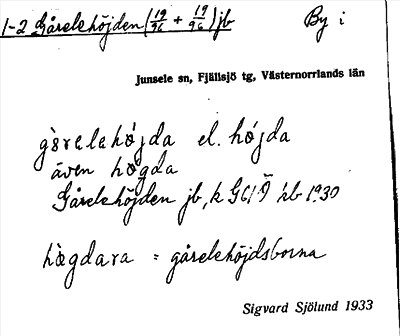 1-2 Gårelehöjden (19/96 + 19/96) jb By i
Junsele sn, Fjällsjö tg, Västernorrlands län
gårelehöjda el. höjda
även högda
Gårelehöjden jb, k G61Ö kb 1930
högdara = gårelehöjdsborna
Sigvard Sjölund 1933